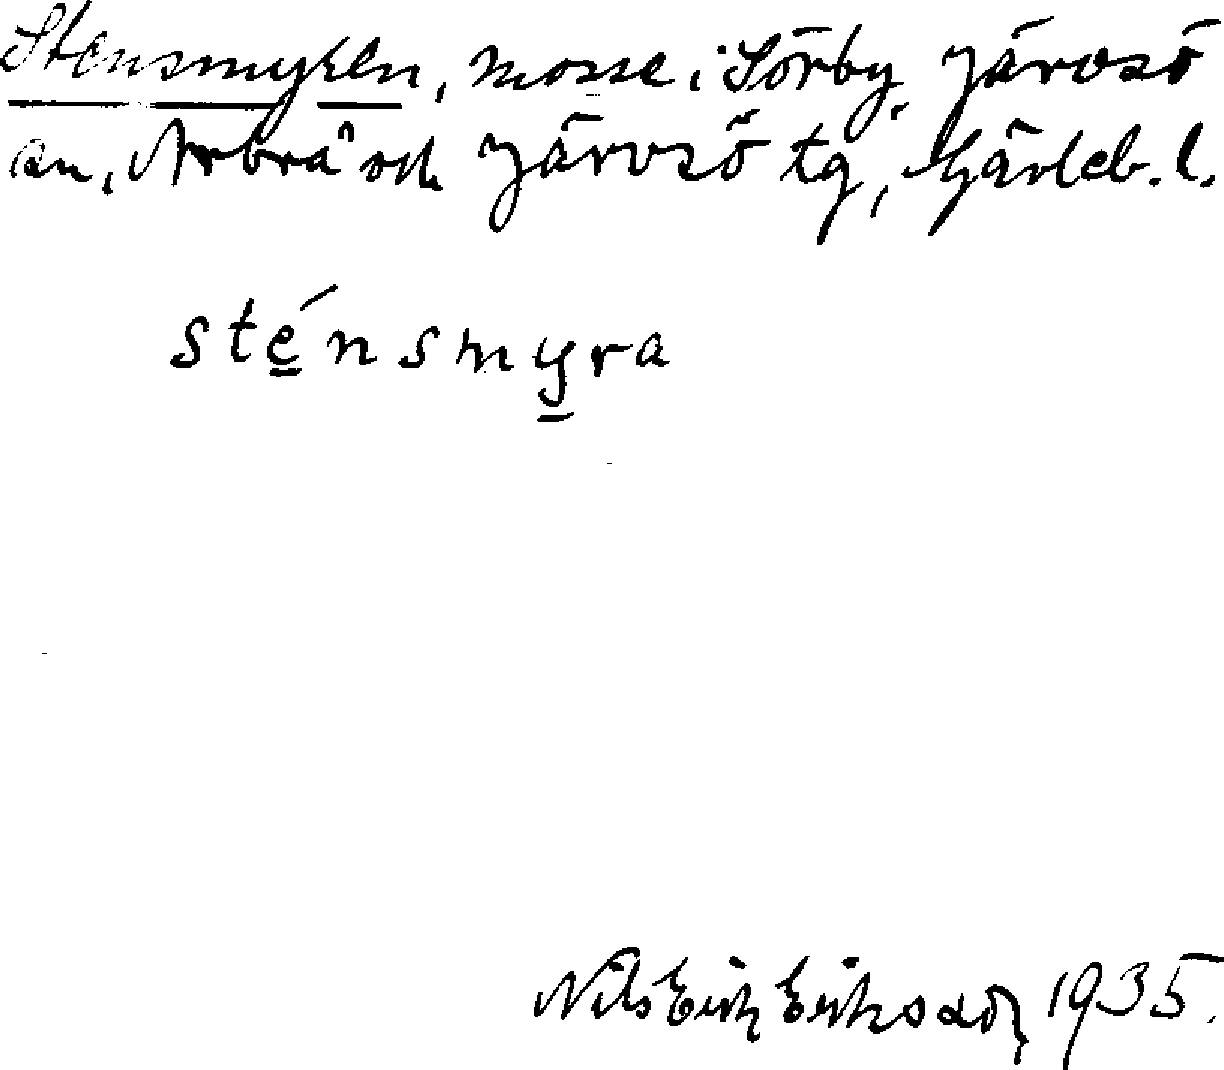 Stensmyren, mosse i Sörby, Järvsö
sn, Arbrå och Järvsö tg, Gävleb. l.
sténsmyra
Nils Erik Eriksson 1935.